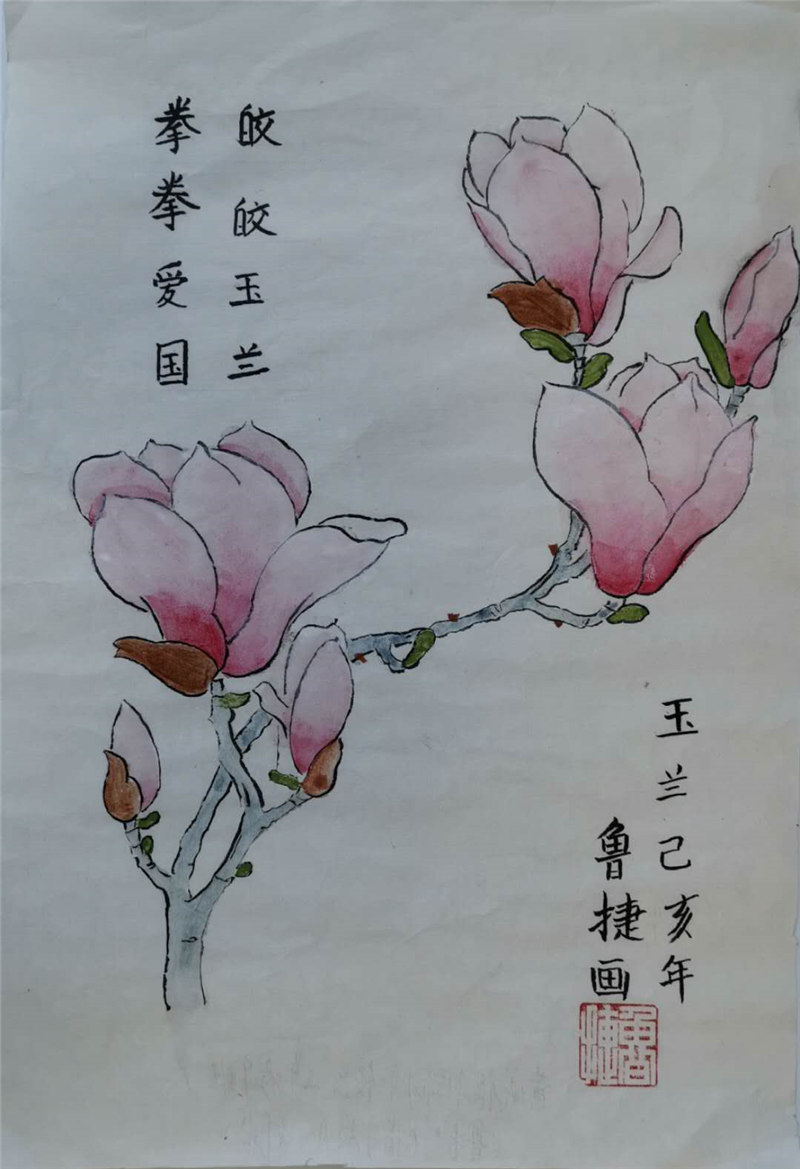 皎皎玉兰
拳拳爱国
玉兰己亥年
鲁捷画